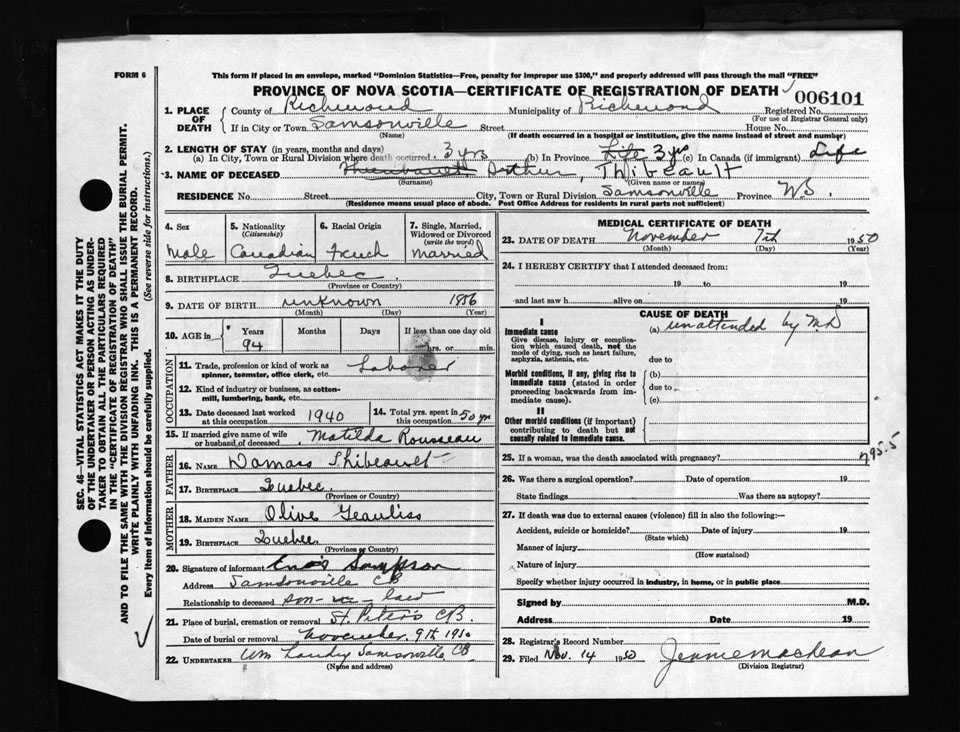 FORM 6
This form if placed in an envelope, marked "Dominion Statistics—Free, penalty for improper use $300," and properly addressed will pass through the mail "FREE"
PROVINCE OF NOVA SCOTIA—CERTIFICATE OF REGISTRATION OF DEATH
006101
1. PLACE OF DEATH
County of Richmond Municipality of Richmond Registered No.
(For use of Registrar General only)
If in City or Town Samsonville Street House No.
(Name) (If death occurred in a hospital or institution, give the name instead of street and number)
2. LENGTH OF STAY (in years, months and days)
(a) In City, Town or Rural Division where death occurred 3 yrs (b) In Province Life 3 yrs (c) In Canada (if immigrant) Life
3. NAME OF DECEASED Arthur, Thibeault
(Surname) (Given name or names)
RESIDENCE No. Street City, Town or Rural Division Samsonville Province N.S.
(Residence means usual place of abode. Post Office Address for residents in rural parts not sufficient)
4. Sex
Male
5. Nationality
(Citizenship)
Canadian
6. Racial Origin
French
7. Single, Married, Widowed or Divorced
(write the word)
Married
8. BIRTHPLACE Quebec
(Province or Country)
9. DATE OF BIRTH unknown 1856
(Month) (Day) (Year)
10. AGE in
Years Months Days If less than one day old
94 hrs. or min.
OCCUPATION
11. Trade, profession or kind of work as spinner, teamster, office clerk, etc. Laborer
12. Kind of industry or business, as cotton-mill, lumbering, bank, etc.
13. Date deceased last worked at this occupation 1940
14. Total yrs. spent in this occupation 50 yrs
15. If married give name of wife or husband of deceased Matilda Rousseau
FATHER
16. NAME Damass Thibeault
17. BIRTHPLACE Quebec
(Province or Country)
MOTHER
18. MAIDEN NAME Olive
19. BIRTHPLACE Quebec
(Province or Country)
20. Signature of informant Sampson
Address Samsonville CB
Relationship to deceased son-in-law
21. Place of burial, cremation or removal St. Peter's CB.
Date of burial or removal November 9th 1950
22. UNDERTAKER Wm Landry Samsonville CB
(Name and address)
MEDICAL CERTIFICATE OF DEATH
23. DATE OF DEATH November 7th 1950
(Month) (Day) (Year)
24. I HEREBY CERTIFY that I attended deceased from:
19 to 19
and last saw h alive on 19
CAUSE OF DEATH
I
Immediate cause
(a) unattended by M.D
Give disease, injury or complication which caused death, not the mode of dying, such as heart failure, asphyxia, asthenia, etc.
due to
Morbid conditions, if any, giving rise to immediate cause (stated in order proceeding backwards from immediate cause).
(b)
due to
(c)
II
Other morbid conditions (if important) contributing to death but not causally related to immediate cause.
25. If a woman, was the death associated with pregnancy? 795.5
26. Was there a surgical operation? Date of operation 19
State findings Was there an autopsy?
27. If death was due to external causes (violence) fill in also the following:—
Accident, suicide or homicide? Date of injury 19
(State which)
Manner of injury
(How sustained)
Nature of injury
Specify whether injury occurred in industry, in home, or in public place
Signed by M.D.
Address Date 19
28. Registrar's Record Number
29. Filed Nov. 14 1950 Jennie MacLean
(Division Registrar)
SEC. 46—VITAL STATISTICS ACT MAKES IT THE DUTY
OF THE UNDERTAKER OR PERSON ACTING AS UNDER-
TAKER TO OBTAIN ALL THE PARTICULARS REQUIRED
IN THE "CERTIFICATE OF REGISTRATION OF DEATH"
AND TO FILE THE SAME WITH THE DIVISION REGISTRAR WHO SHALL ISSUE THE BURIAL PERMIT.
WRITE PLAINLY WITH UNFADING INK. THIS IS A PERMANENT RECORD.
Every item of information should be carefully supplied. (See reverse side for instructions.)